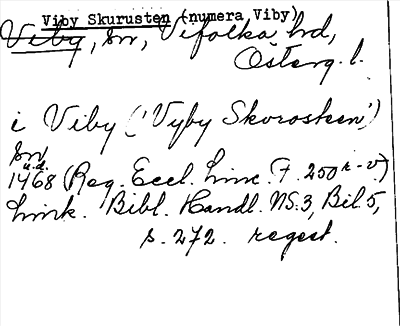 Viby Skurusten (numera Viby)
Viby, sn, Vifolka hd,
Österg. l.
i Viby ('Vyby Skorosteen')
sn
u.d.
1468 (Reg. Eccl. Linc. F. 250 r-v)
Link. Bibl. Handl. NS. 3, Bil. 5,
s. 272. regest.